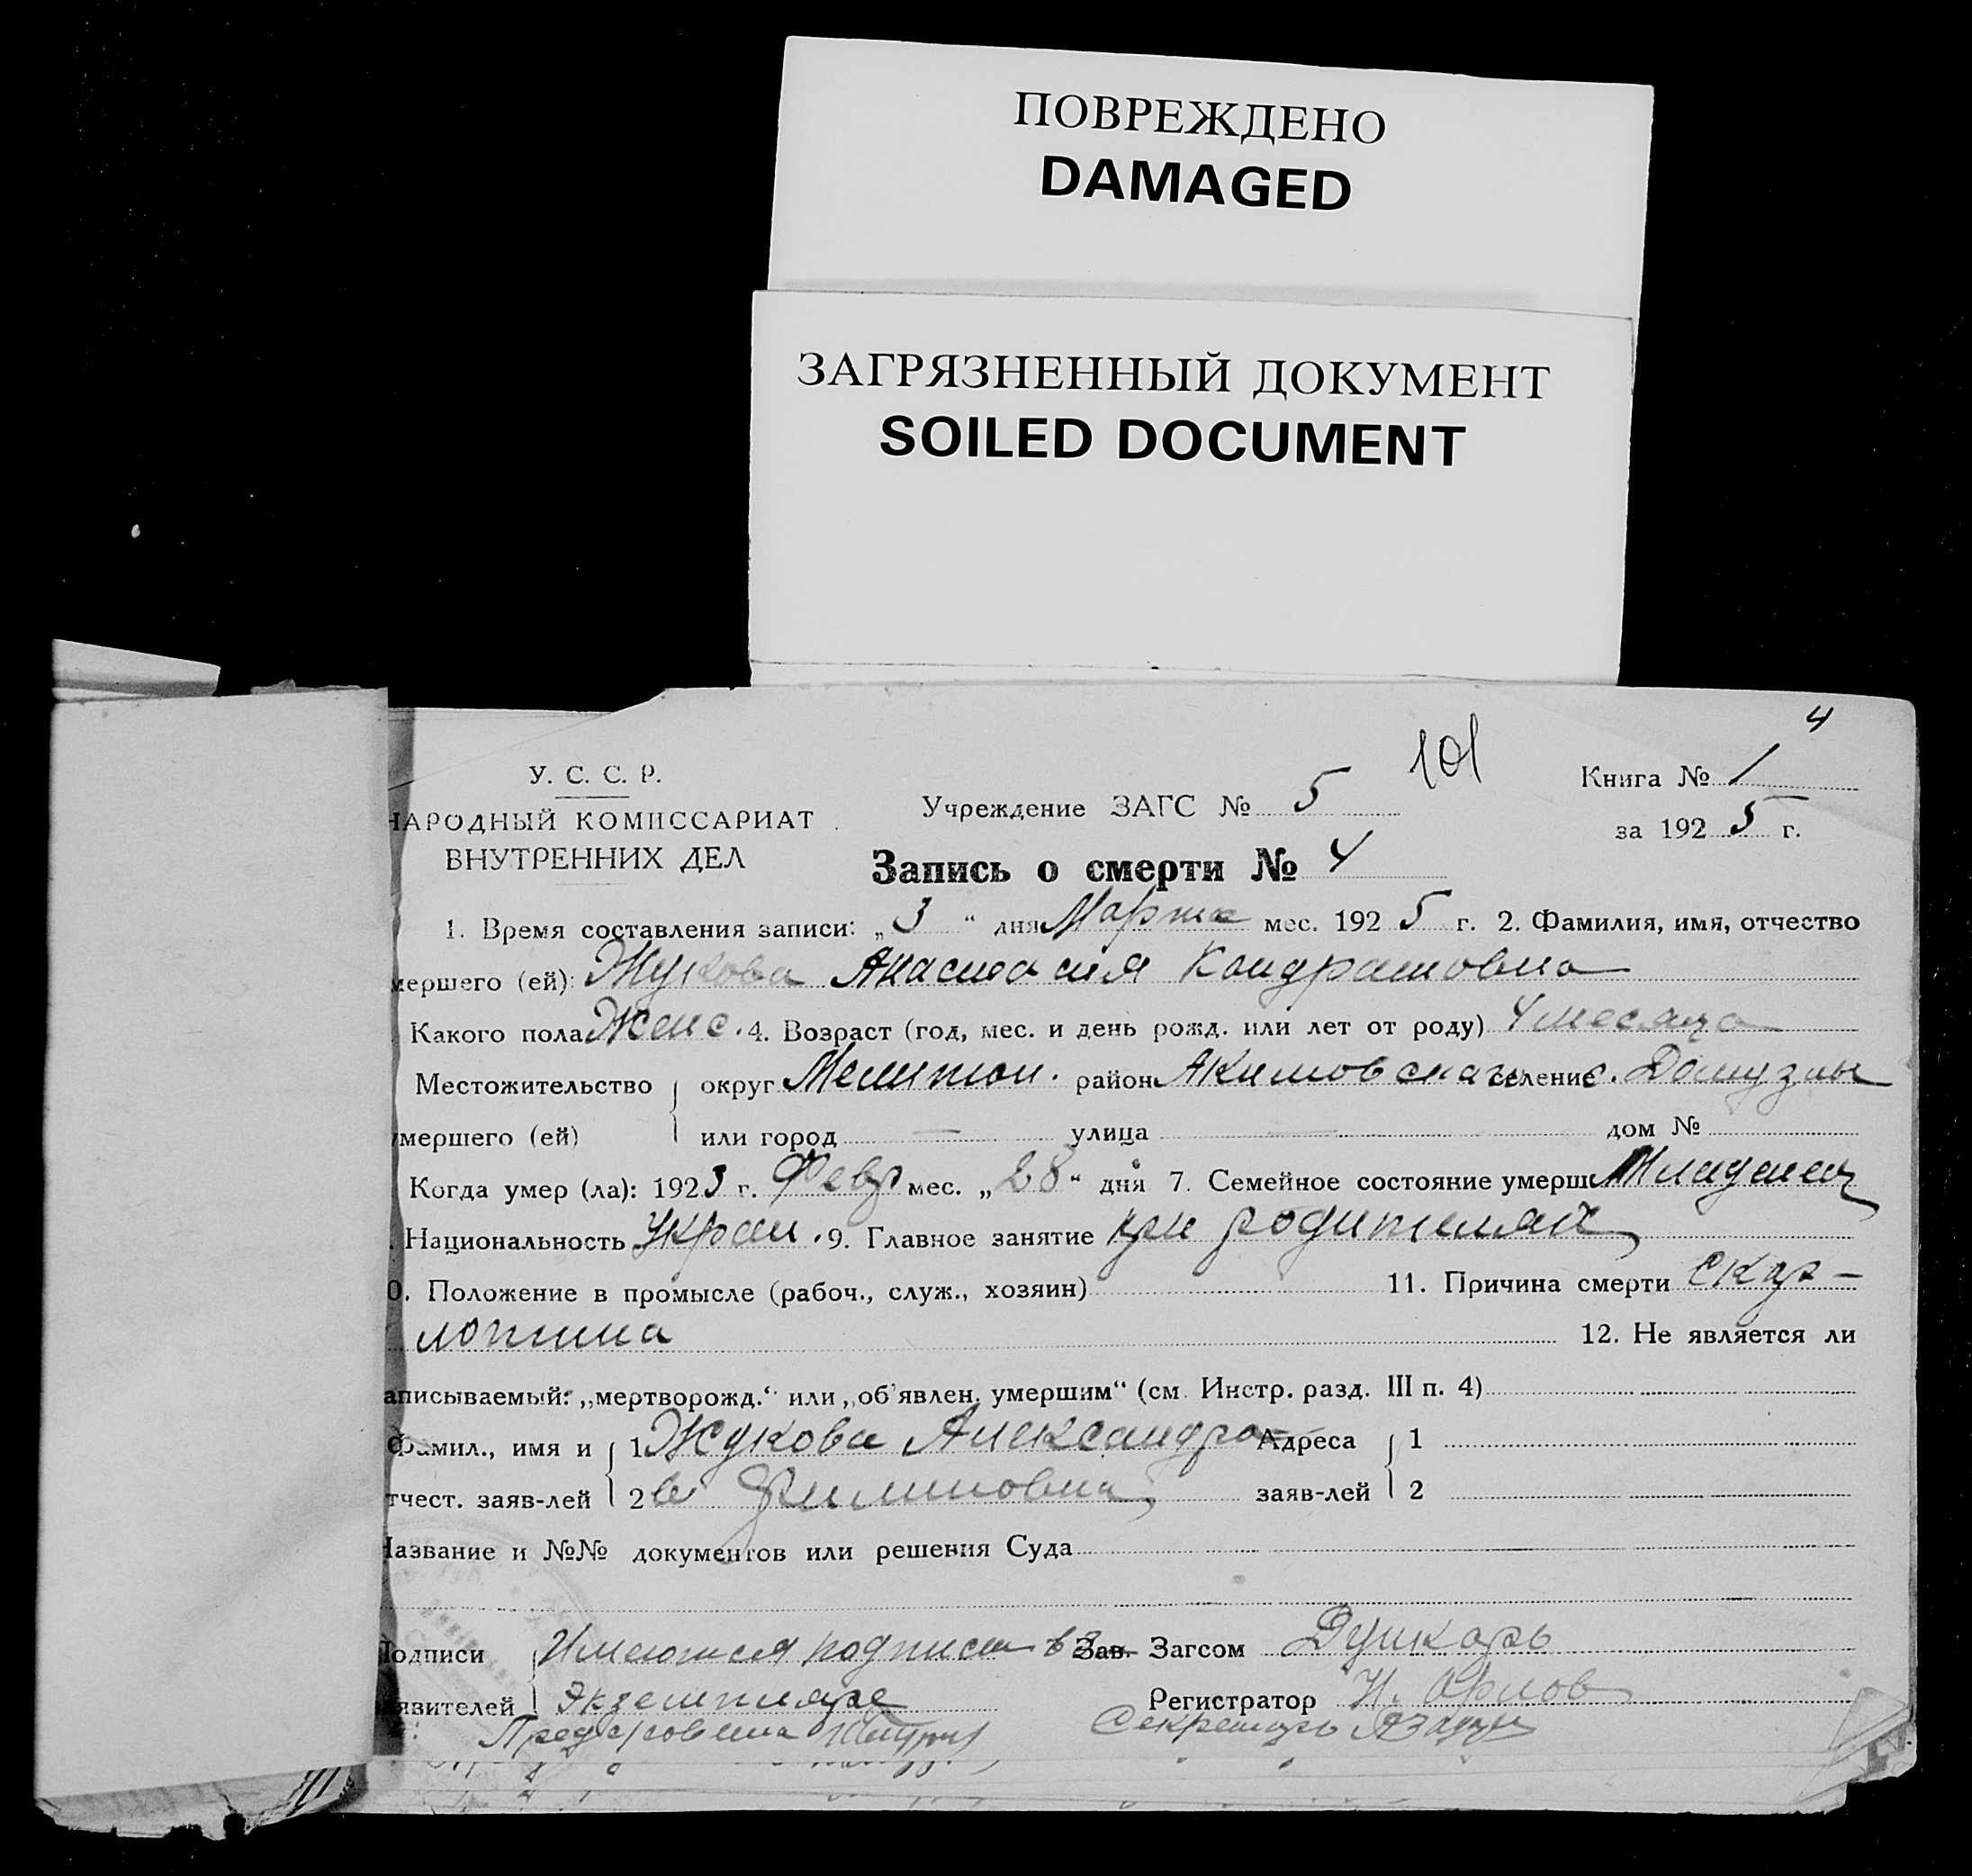 ПОВРЕЖДЕНО
DAMAGED
ЗАГРЯЗНЕННЫЙ ДОКУМЕНТ
SOILED DOCUMENT
4
У. С. С. Р.
НАРОДНЫЙ КОМИССАРИАТ
ВНУТРЕННИХ ДЕЛ
Учреждение ЗАГС № 5
101
Книга № 1
за 1925 г.
Запись о смерти № 4
1. Время составления записи: „3“ дня Марта мес. 1925 г. 2. Фамилия, имя, отчество
мершего (ей): Жукова Анастасия Кондратовна
Какого пола Женс. 4. Возраст (год, мес. и день рожд. или лет от роду) 4 месяца
Местожительство округ Мелитоп. район Акимовского селение с. Домузлы
мершего (ей) или город — улица — дом №
Когда умер (ла): 1923 г. Февр мес. „28“ дня 7. Семейное состояние умерш Младенец
Национальность Украин. 9. Главное занятие при родителях
0. Положение в промысле (рабоч., служ., хозяин) 11. Причина смерти скар-
лотина
12. Не является ли
аписываемый: „мертворожд.“ или „об'явлен. умершим“ (см. Инстр. разд. III п. 4)
Фамил., имя и 1 Жукова Александра Адреса 1
тчест. заяв-лей 2 Филиповна заяв-лей 2
Название и №№ документов или решения Суда
Подписи Имеются подписи в Зав. Загсом
явителей Экземпляре Регистратор Н. Орлов
Пред сровета Секретарь